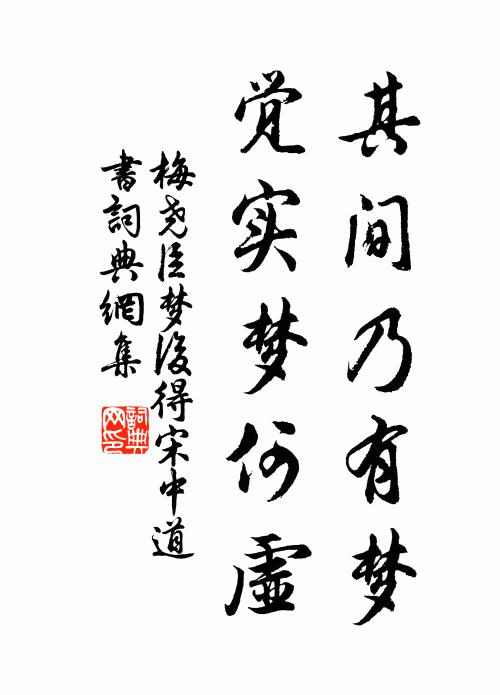 其间乃有梦
觉实梦何虚
梅尧臣梦後得宋中道
書詞典網集
詞典网印